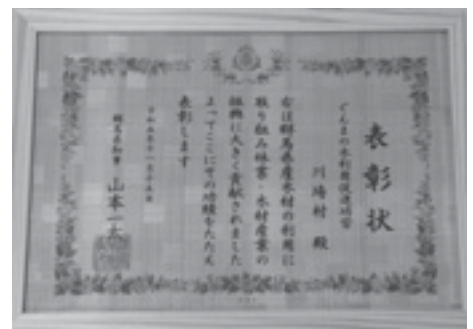 表彰状
ぐんまの木利用促進功労
川場村 殿
右は群馬県産木材の利用に
取り組み林業・木材産業の
振興に大きく貢献されました
よってここにその功績をたたえ
表彰します
群馬県知事 山本一太